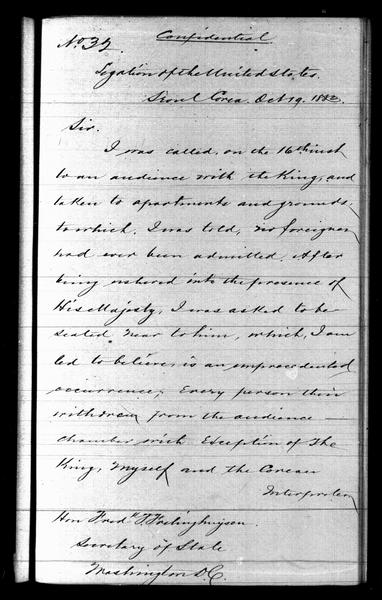 Confidential
No. 32
Legation of the United States.
Seoul Corea, Oct 19, 1883.
Sir.
I was called, on the 16th inst
to an audience with the King, and
taken to apartments and grounds,
to which, I was told, no foreigner
had ever been admitted. After
being ushered into the presence of
His Majesty, I was asked to be
seated near to him, which, I am
led to believe, is an unprecedented
occurrence; Every person then
withdrew from the audience
chamber with Exception of the
King, Myself and the Corean
Interpreter,
Hon Fredk T. Frelinghuysen.
Secretary of State
Washington D.C.